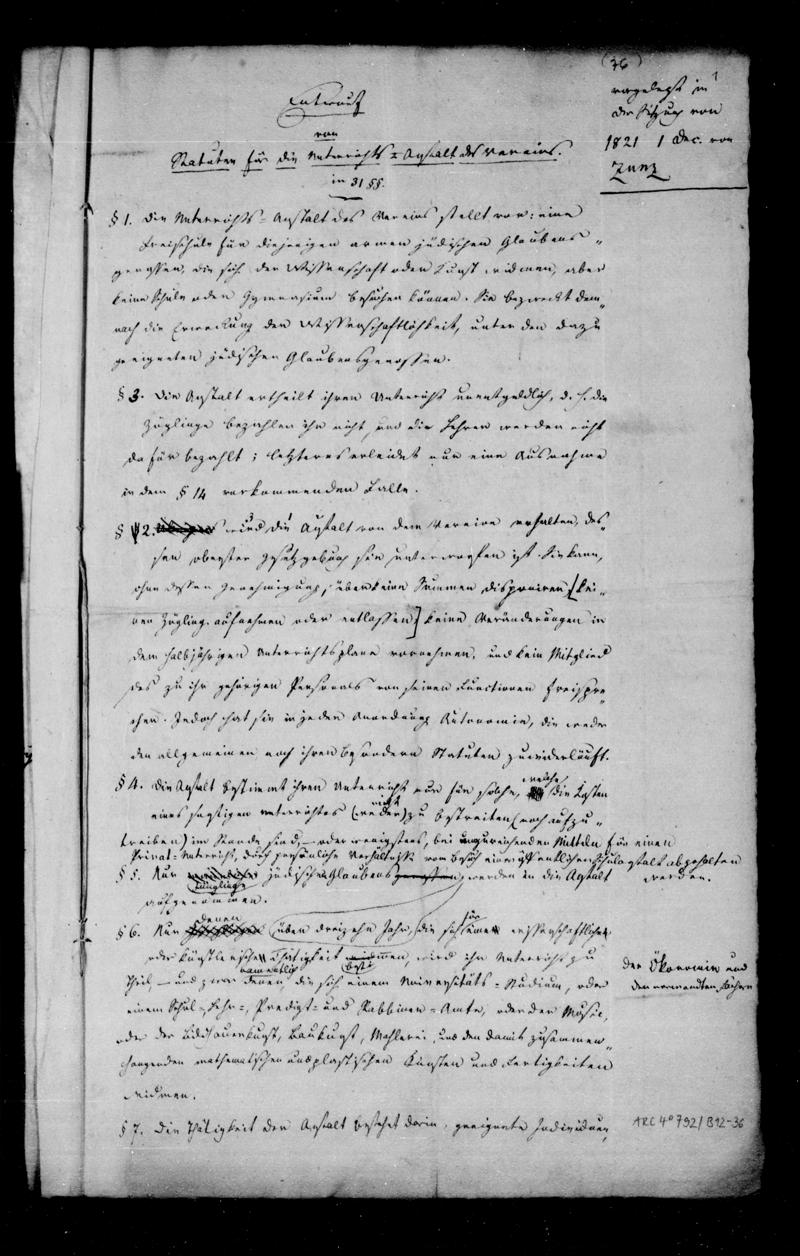 (36)
vorgelegt in
der Sitzung von
1821 1 Dec. von
Zunz
Entwurf
von
Statuten für die Unterrichts-Anstalt des Vereins.
in 31 §§.
§ 1. Die Unterrichts-Anstalt des Vereins stellt vor: eine
Freischule für diejenigen armen jüdischen Glaubens-
genossen, die sich der Wissenschaft oder Kunst widmen, aber
keine Schule oder Gymnasium besuchen können. Sie bezweckt dem-
nach die Erweckung der Wissenschaftlichkeit, unter den dazu
geeigneten jüdischen Glaubensgenossen.
§ 3. Die Anstalt ertheilt ihren Unterricht unentgeldlich, d. h. die
Zöglinge bezahlen ihn nicht, und die Lehrer werden nicht
dafür bezahlt; letzteres erleidet nur eine Ausnahme
in dem § 14 vorkommenden Falle.
§ 2. wird die Anstalt von dem Vereine erhalten, des-
sen oberster Gesetzgebung sie unterworfen ist. Sie kann,
ohne dessen Genehmigung, über keine Summen disponiren [kei-
nen Zögling aufnehmen oder entlassen] keine Veränderungen in
dem halbjährigen Unterrichtsplane vornehmen, und kein Mitglied
des zu ihr gehörigen Personals von seinen Functionen freispre-
chen. Jedoch hat sie in jeder Anordnung Autonomie, die weder
den allgemeinen noch ihren besondern Statuten zuwiderläuft.
§ 4. Die Anstalt bestimmt ihren Unterricht nur für solche, welche die Kosten
eines sonstigen Unterrichtes (weder) nicht zu bestreiten (noch aufzu-
treiben) im Stande sind, – oder wenigstens, bei unzureichenden Mitteln für einen
Privat-Unterricht, durch persönliche Verhältnisse vom Besuch einer öffentlichen Schulanstalt abgehalten
werden.
§ 5. Nur Jünglinge jüdischen Glaubens werden in die Anstalt
aufgenommen.
§ 6. Nur denen über dreizehn Jahr, die sich für eine wissenschaftliche
oder künstlerische Thätigkeit widmen, wird ihr Unterricht zu
Theil, – und zwar namentlich denen, die sich einem Universitäts-Studium, oder
einem Schul-, Lehr-, Predigt- und Rabbiner-Amte, oder der Musik,
der Ökonomie und
den verwandten Fächern
oder der Bildhauerkunst, Baukunst, Mahlerei, und den damit zusammen-
hangenden mathematischen und plastischen Künsten und Fertigkeiten
widmen.
§ 7. Die Thätigkeit der Anstalt besteht darin, geeignete Individuen,
ARC 4° 792/B12-36